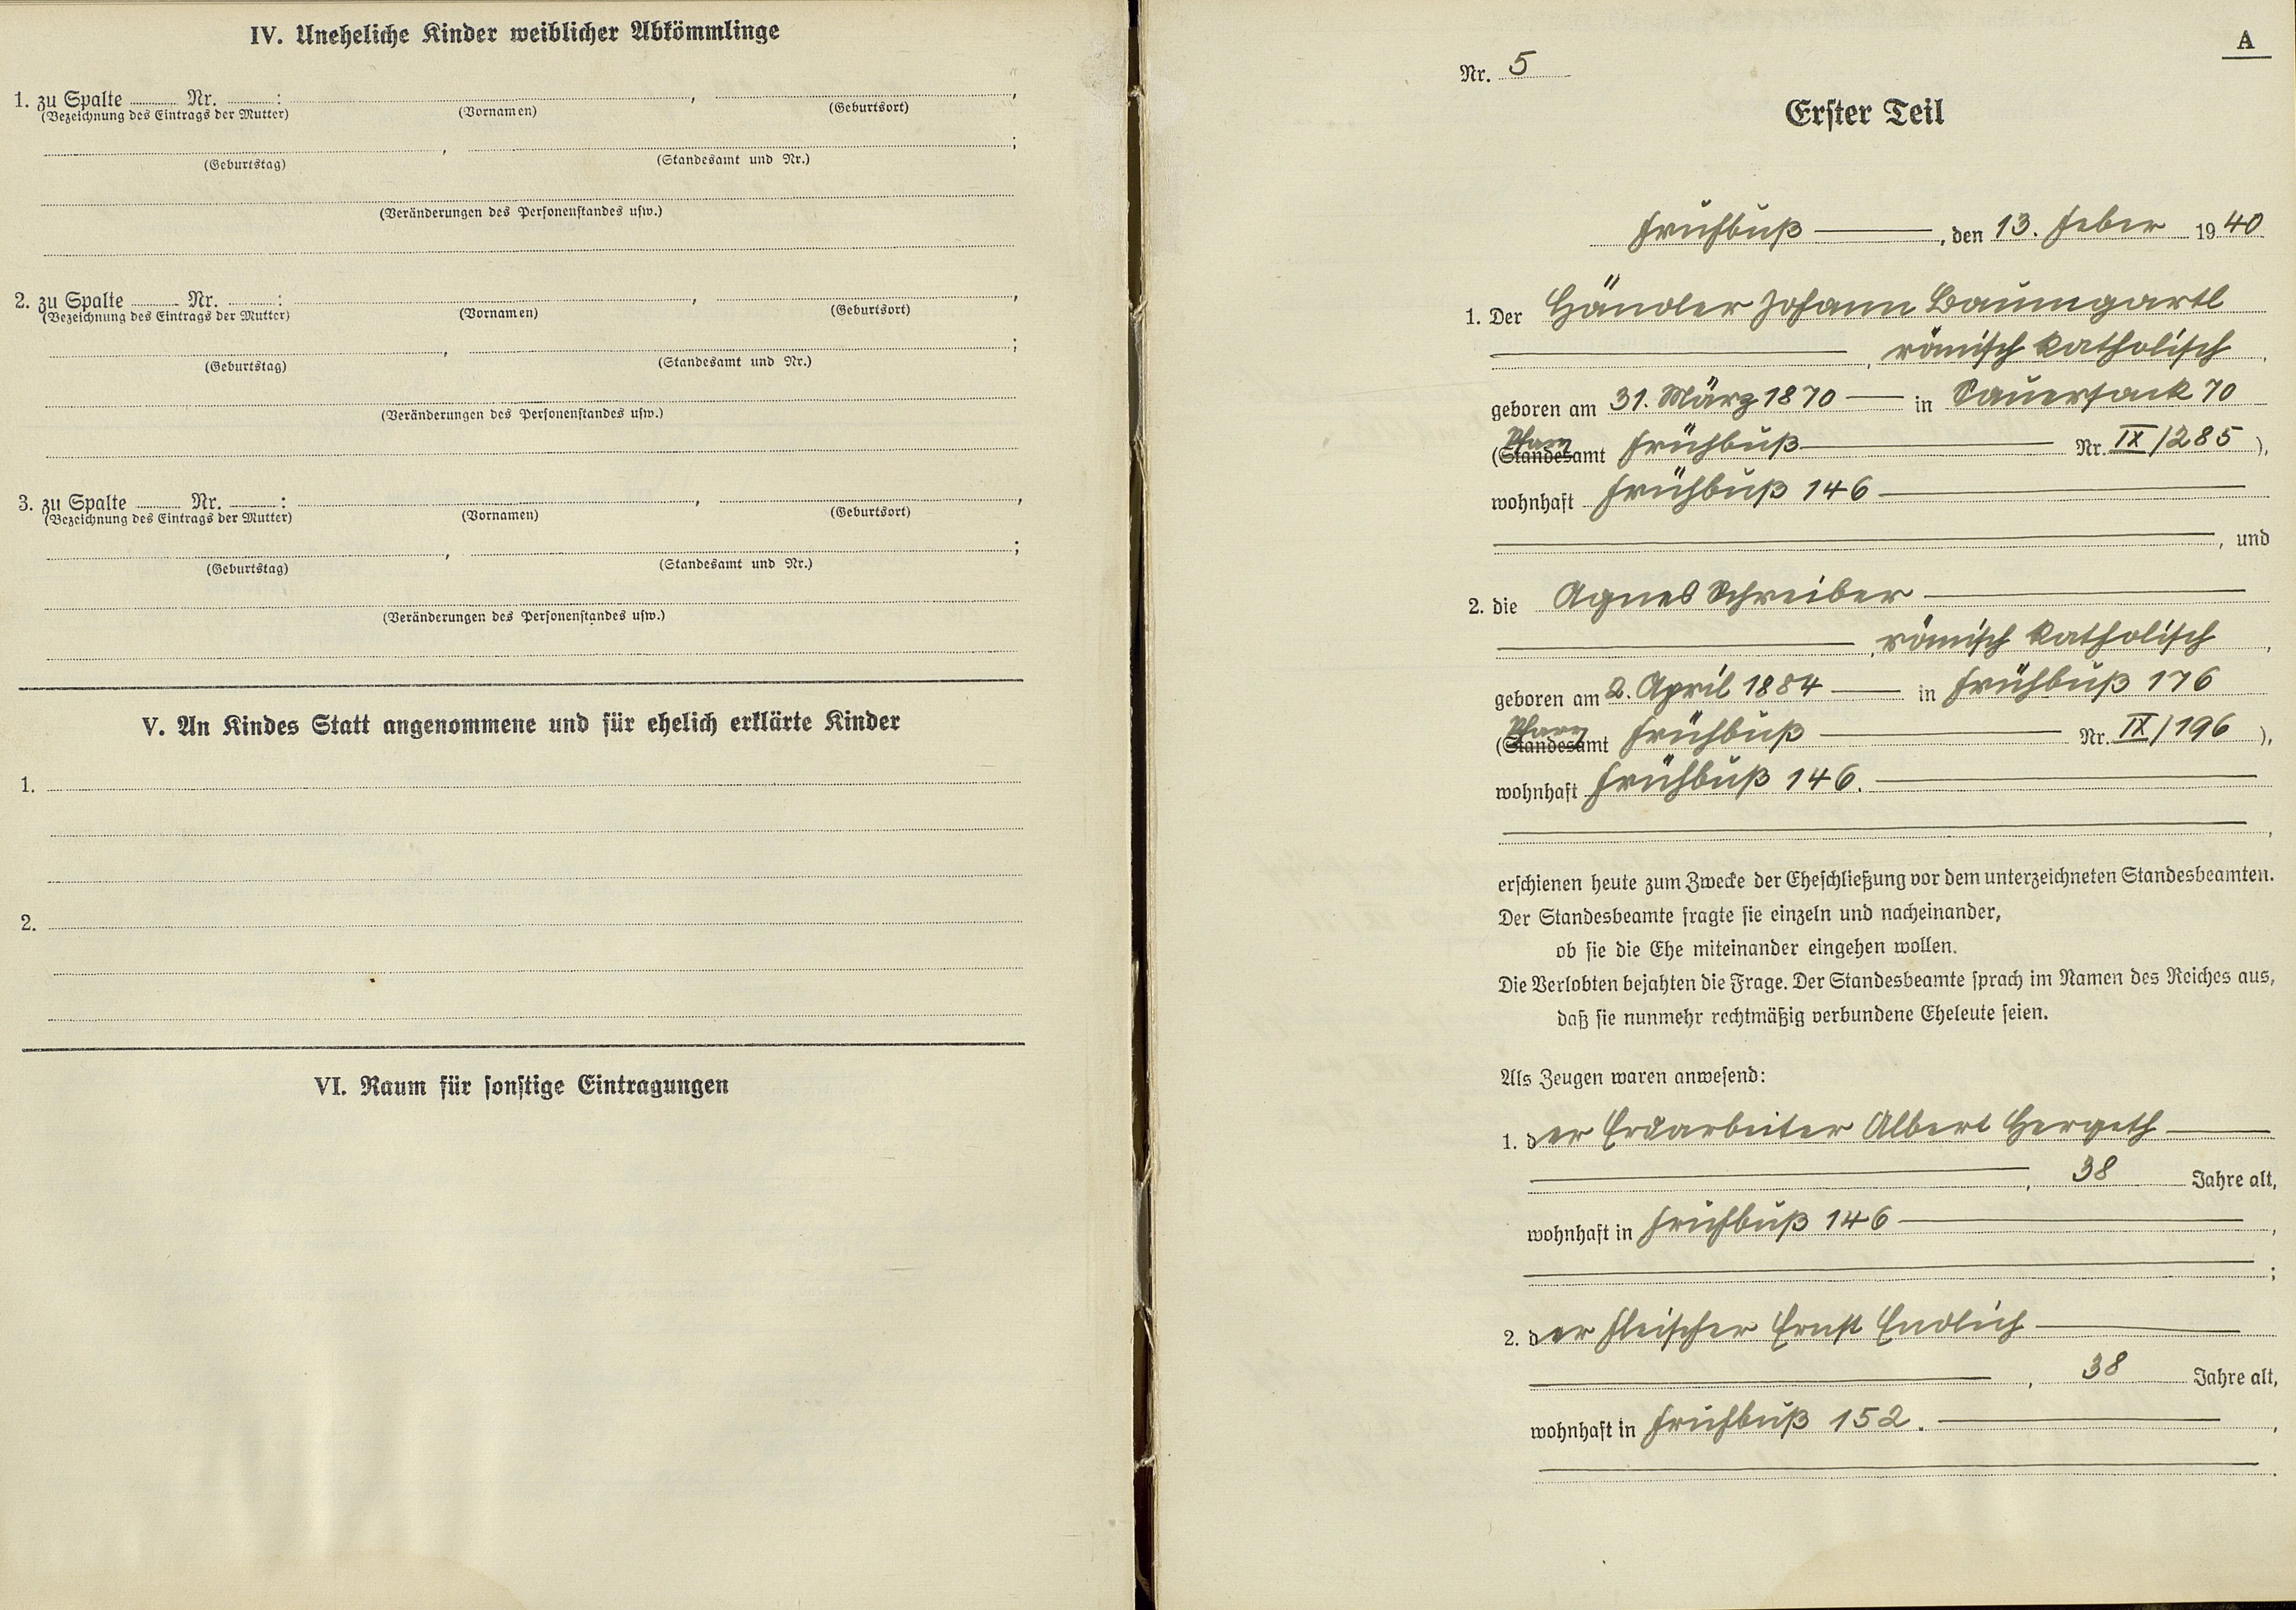 IV. Uneheliche Kinder weiblicher Abkömmlinge
1. zu Spalte ........ Nr. ........: ........, ........,
(Bezeichnung des Eintrags der Mutter) (Vornamen) (Geburtsort)
........, ........;
(Geburtstag) (Standesamt und Nr.)
(Veränderungen des Personenstandes usw.)
2. zu Spalte ........ Nr. ........: ........, ........,
(Bezeichnung des Eintrags der Mutter) (Vornamen) (Geburtsort)
........, ........;
(Geburtstag) (Standesamt und Nr.)
(Veränderungen des Personenstandes usw.)
3. zu Spalte ........ Nr. ........: ........, ........,
(Bezeichnung des Eintrags der Mutter) (Vornamen) (Geburtsort)
........, ........;
(Geburtstag) (Standesamt und Nr.)
(Veränderungen des Personenstandes usw.)
V. An Kindes Statt angenommene und für ehelich erklärte Kinder
1.
2.
VI. Raum für sonstige Eintragungen
A
Nr. 5
Erster Teil
Frühbuß, den 13. Feber 1940
1. Der Händler Johann Baumgartl
, römisch katholisch,
geboren am 31. März 1870 in Sauersack 70
Pfarr
(Standesamt Frühbuß Nr. IX/285),
wohnhaft Frühbuß 146
, und
2. die Agnes Schreiber
, römisch katholisch,
geboren am 2. April 1884 in Frühbuß 176
Pfarr
(Standesamt Frühbuß Nr. IX/196),
wohnhaft Frühbuß 146.
,
erschienen heute zum Zwecke der Eheschließung vor dem unterzeichneten Standesbeamten.
Der Standesbeamte fragte sie einzeln und nacheinander,
ob sie die Ehe miteinander eingehen wollen.
Die Verlobten bejahten die Frage. Der Standesbeamte sprach im Namen des Reiches aus,
daß sie nunmehr rechtmäßig verbundene Eheleute seien.
Als Zeugen waren anwesend:
1. der Erdarbeiter Albert Hergeth
, 38 Jahre alt,
wohnhaft in Frühbuß 146,
;
2. der Fleischer Ernst Endlich
, 38 Jahre alt,
wohnhaft in Frühbuß 152.,
.